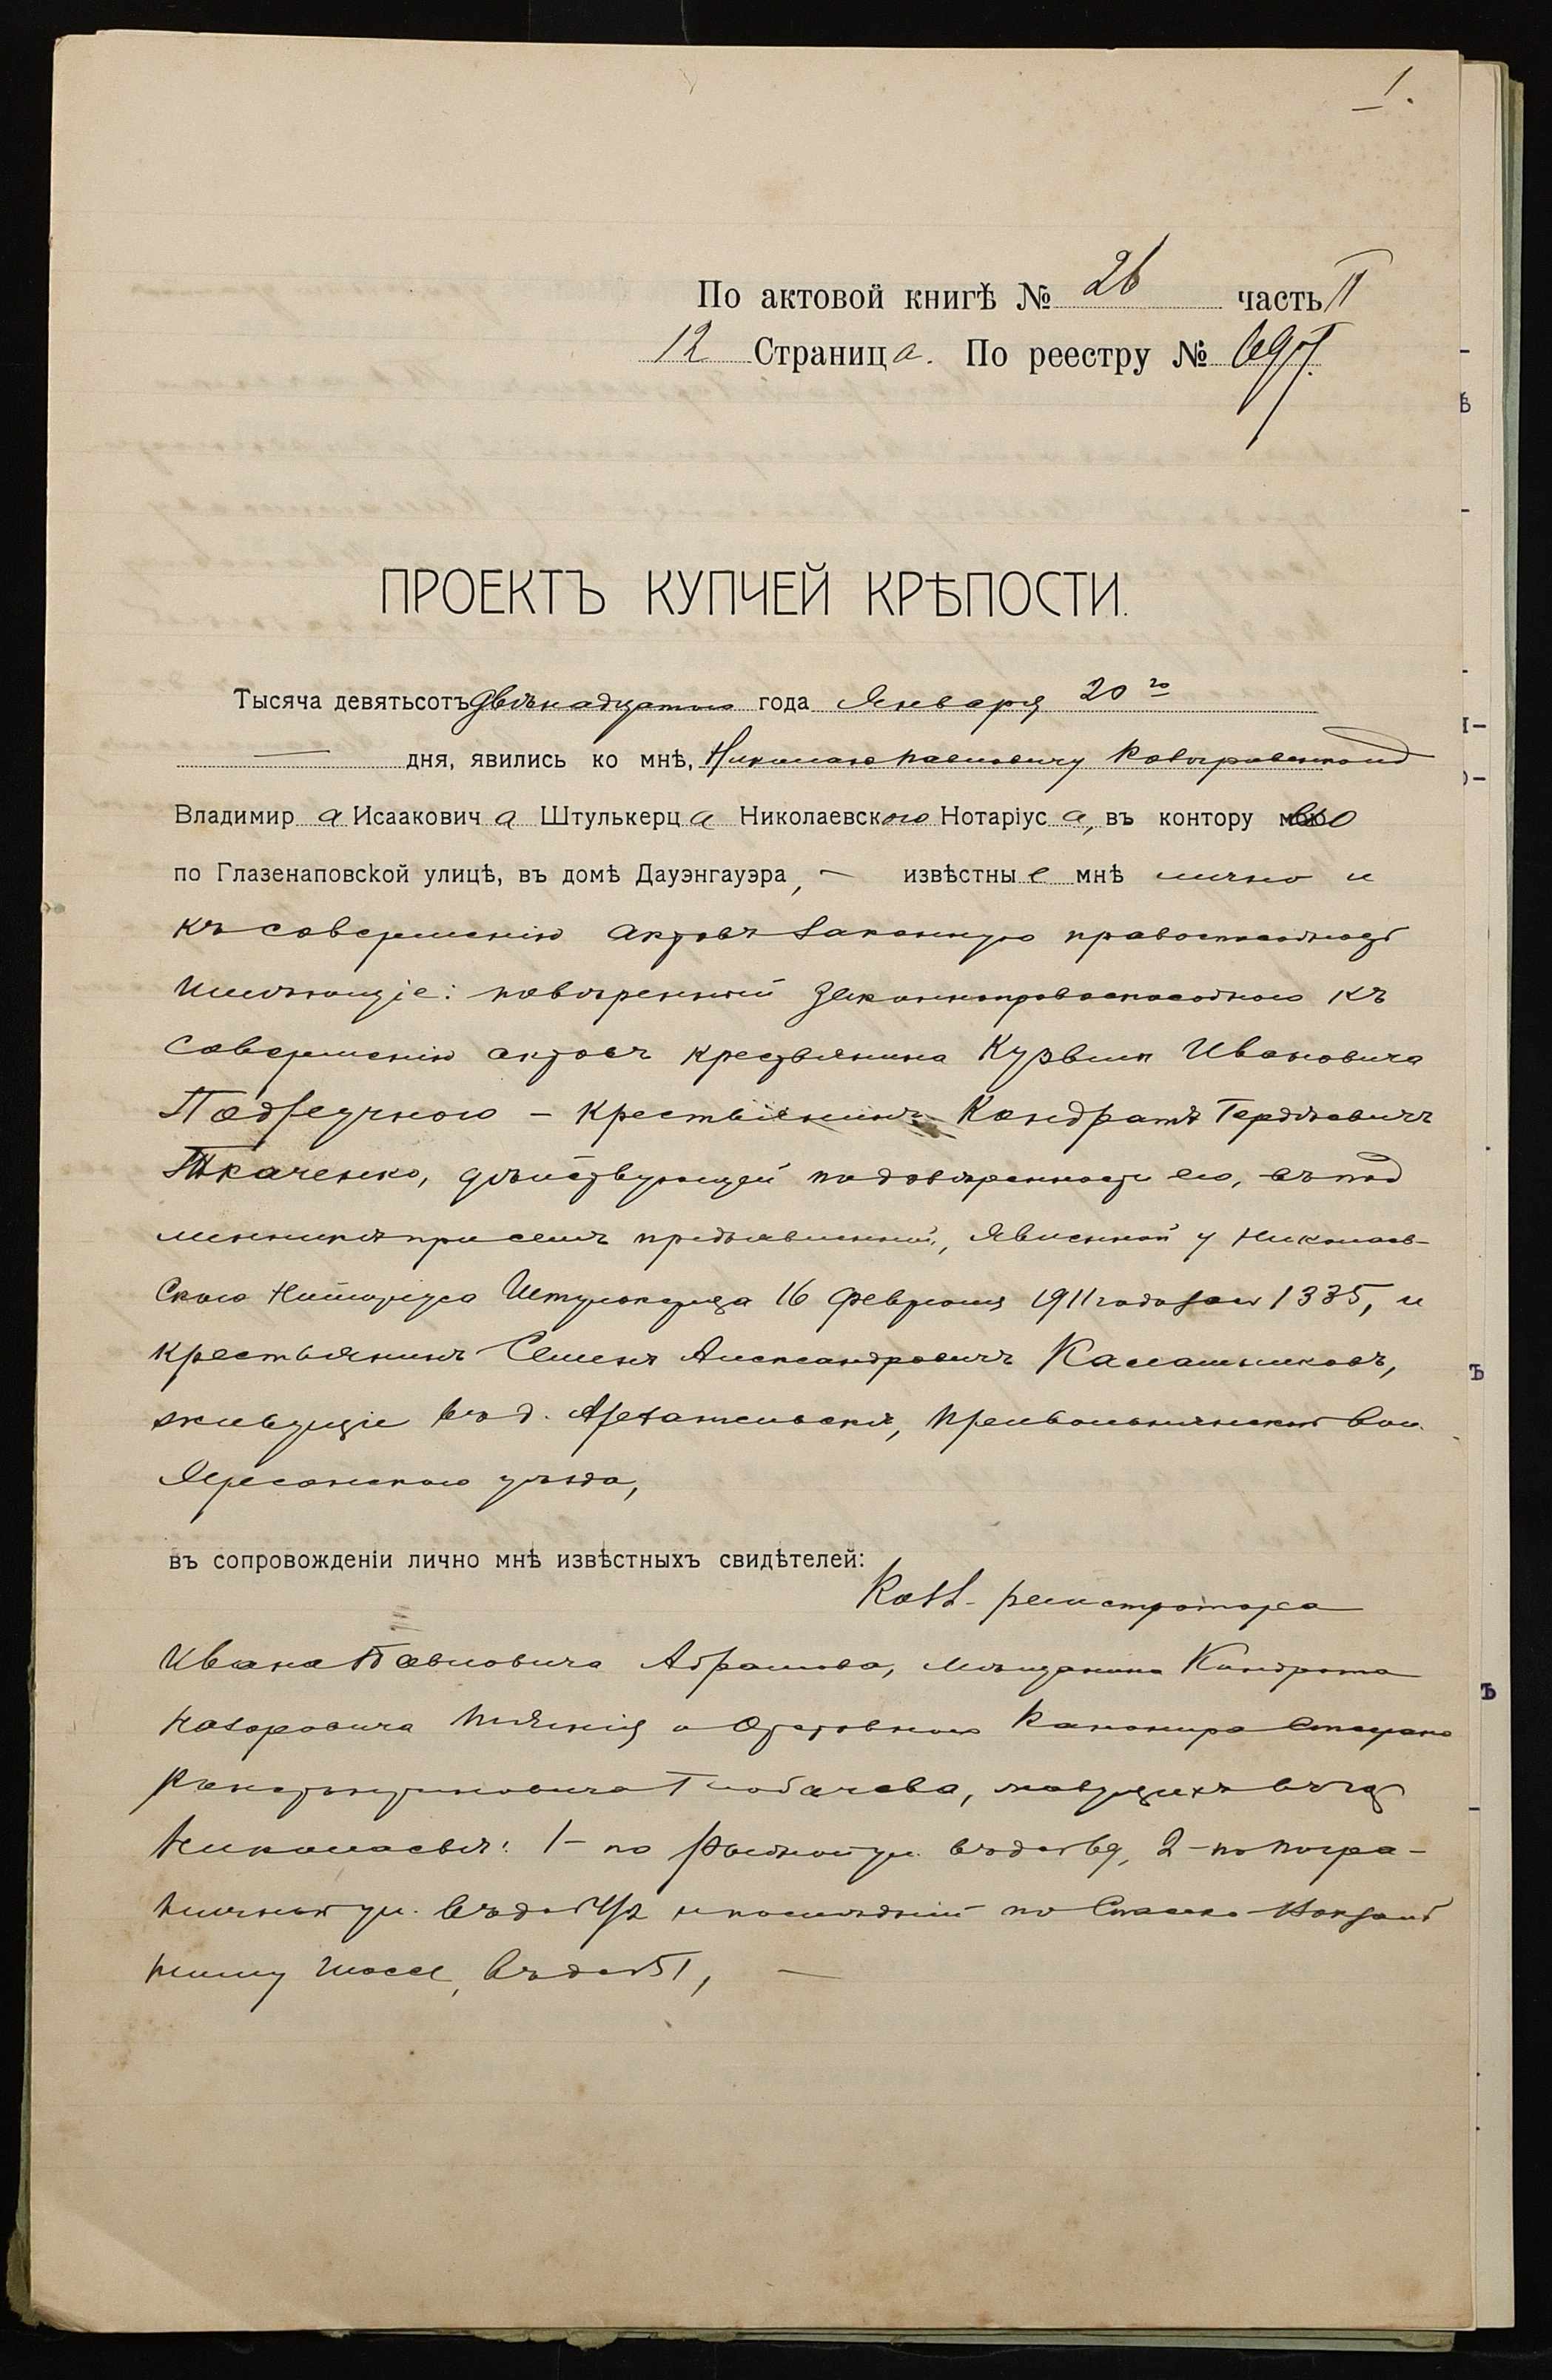 1.
По актовой книгѣ № 26 часть II
12 Страница. По реестру №
ПРОЕКТЪ КУПЧЕЙ КРѢПОСТИ.
Тысяча девятьсотъ двѣнадцатого года Января 20го
дня, явились ко мнѣ, Николаю Павловичу
Владимира Исааковича Штулькерца Николаевского Нотаріуса, въ контору его
по Глазенаповской улицѣ, въ домѣ Дауэнгауэра, — извѣстные мнѣ лично и
къ совершенію актовъ законную правоспособность
имѣющіе: повѣренный законноправоспособного къ
совершенію актовъ крестьянина Кузьмы Ивановича
– крестьянинъ Кондратъ Гордѣевичъ
Ткаченко, дѣйствующій по довѣренности его, въ под
линникѣ при семъ предъявленной, явленной у Николаев-
скаго Нотаріуса Штулькерца 16 февраля 1911 года за № 1335, и
крестьянинъ Семенъ Александровичъ Калашниковъ,
живущіе въ д. вол.
Херсонского уѣзда,
въ сопровожденіи лично мнѣ извѣстныхъ свидѣтелей:
Колл. регистратора
Ивана Павловича Абрамова, мѣщанина Кондрата
Назаровича и отставного Канонира Степана
Константиновича Глобачева, живущихъ въ гор
Николаевѣ: 1– по ул. въ д. № 69, 2 – по Погра-
ничной ул. въ д. № и послѣдній по
шоссе, въ д. № 51, —